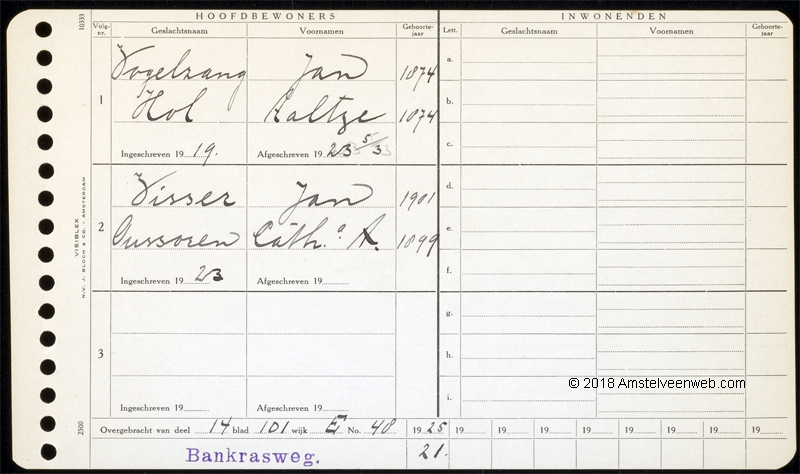 HOOFDBEWONERS
INWONENDEN
10333
Volg-nr.
Geslachtsnaam
Voornamen
Geboorte-jaar
Lett.
Geslachtsnaam
Voornamen
Geboorte-jaar
1
Vogelzang Jan 1874
Hol Aaltje 1874
Ingeschreven 19 19.
Afgeschreven 19 23 5/33
2
Visser Jan 1901
Cath.ª A. 1899
Ingeschreven 19 23
Afgeschreven 19
3
Ingeschreven 19
Afgeschreven 19
a.
b.
c.
d.
e.
f.
g.
h.
i.
VISIBLEX
N.V. J. BLOCH & CO. - AMSTERDAM
2500
© 2018 Amstelveenweb.com
Overgebracht van deel 14 blad 101 wijk E No. 48
19 25 19 19 19 19 19 19 19 19
Bankrasweg.
21.